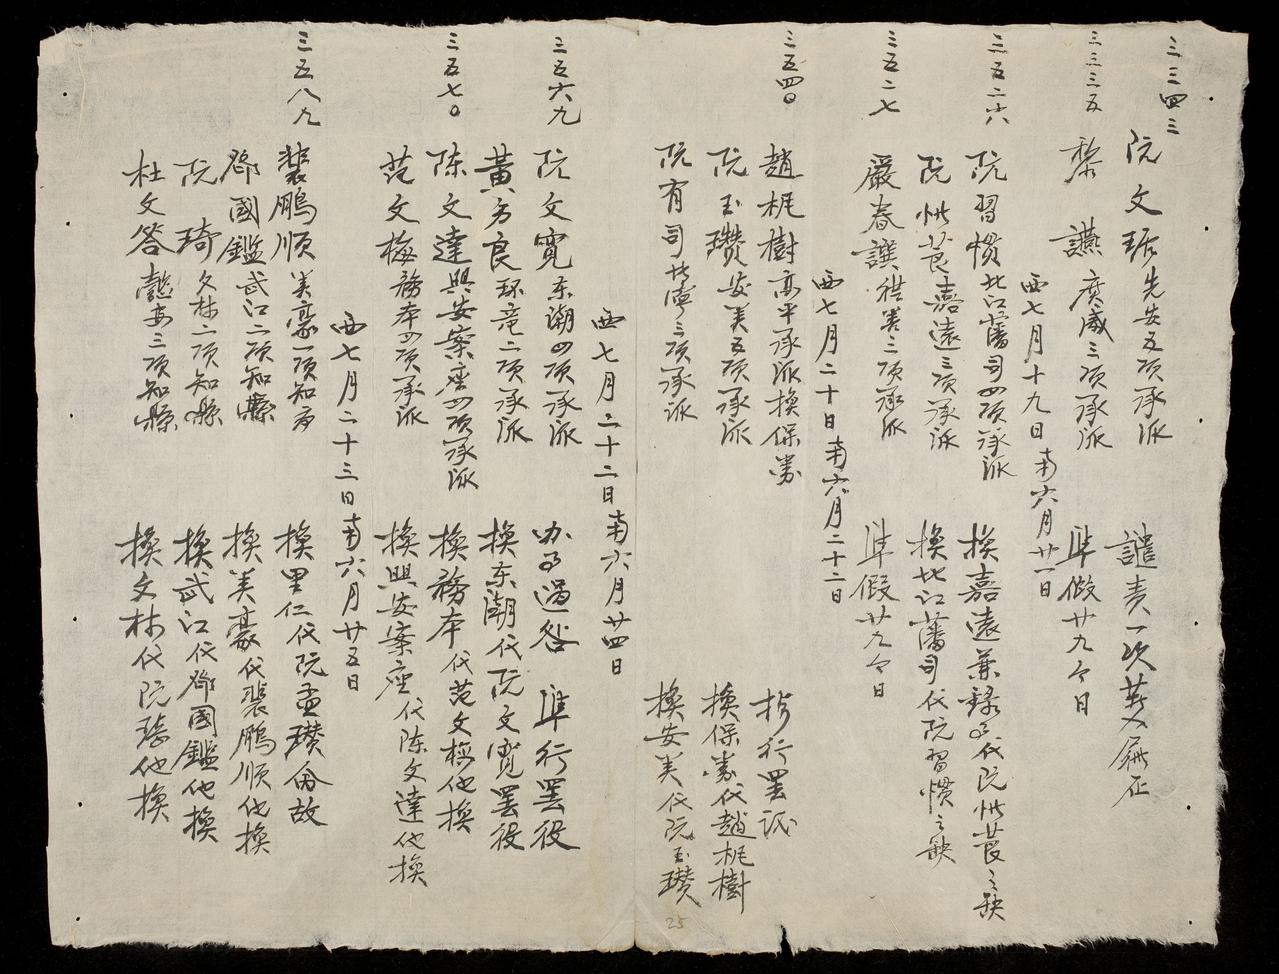 三三四三
阮文琚先安五項承派 譴責一次 屏正
三三三五
黎讌廣威三項承派 準假廿九今日
西七月十九日南六月廿一日
三五二六
阮習慣北江藩司四項承派 換嘉遠兼錄事代阮惟萇之缺
阮惟萇嘉遠三項承派 換北江藩司代阮習慣之缺
三五二七
嚴春譔三項承派 準假廿九今日
西七月二十日南六月二十二日
三五四〇
趙梶樹高平承派換保勝 行罷
阮玉瓚安美五項承派 換保勝代趙梶樹
阮有司北寧三項承派 換安美代阮玉瓚
西七月二十二日南六月廿四日
三五六九
阮文寬东潮四項承派 办事過咎 準行罷役
黃方良环竜二項承派 換东潮代阮文寬罷役
三五七〇
陈文達興安案座四項承派 換務本代范文梅他換
范文梅務本四項承派 換興安案座代陈文達他換
西七月二十三日南六月廿五日
三五八九
裴鵬順美豪一項知 換里仁代阮孟瓚 故
鄧國鑑武江二項知縣 換美豪代裴鵬順他換
阮琦文林二項知縣 換武江代鄧國鑑他換
杜文答 三項知縣 換文林代阮琦他換
25